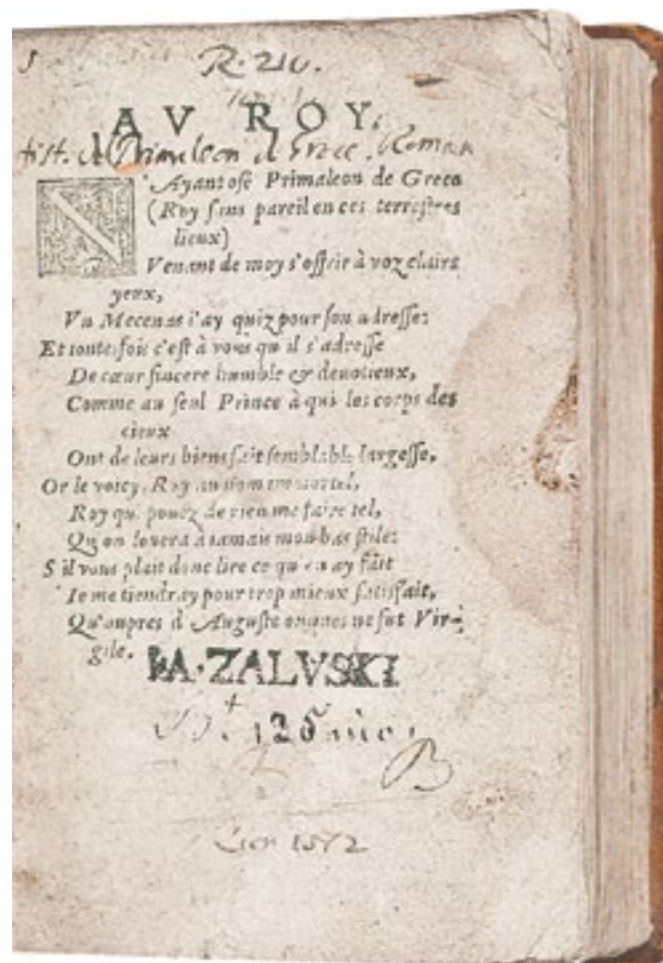 R. 210.
AV ROY.
hist. de Primaleon de Grece. Roman
N'Ayant osé Primaleon de Grece
(Roy sans pareil en ces terrestres
lieux)
Venant de moy s'offrir à voz clairs
yeux,
Vn Mecenas i'ay quiz pour son adresse:
Et toutesfois c'est à vous qu'il s'adresse
De cœur sincere humble & deuotieux,
Comme au seul Prince à qui les corps des
cieux
Ont de leurs biens fait semblable largesse,
Or le voicy, Roy au nom immortel,
Roy qui pouez de rien me faire tel,
Qu'on louera à iamais mon bas stile:
S'il vous plait donc lire ce qu'en ay fait
Ie me tiendray pour trop mieux satisfait,
Qu'aupres d'Auguste onques ne fut Vir-
gile.
I·A·ZALVSKI
B
1572